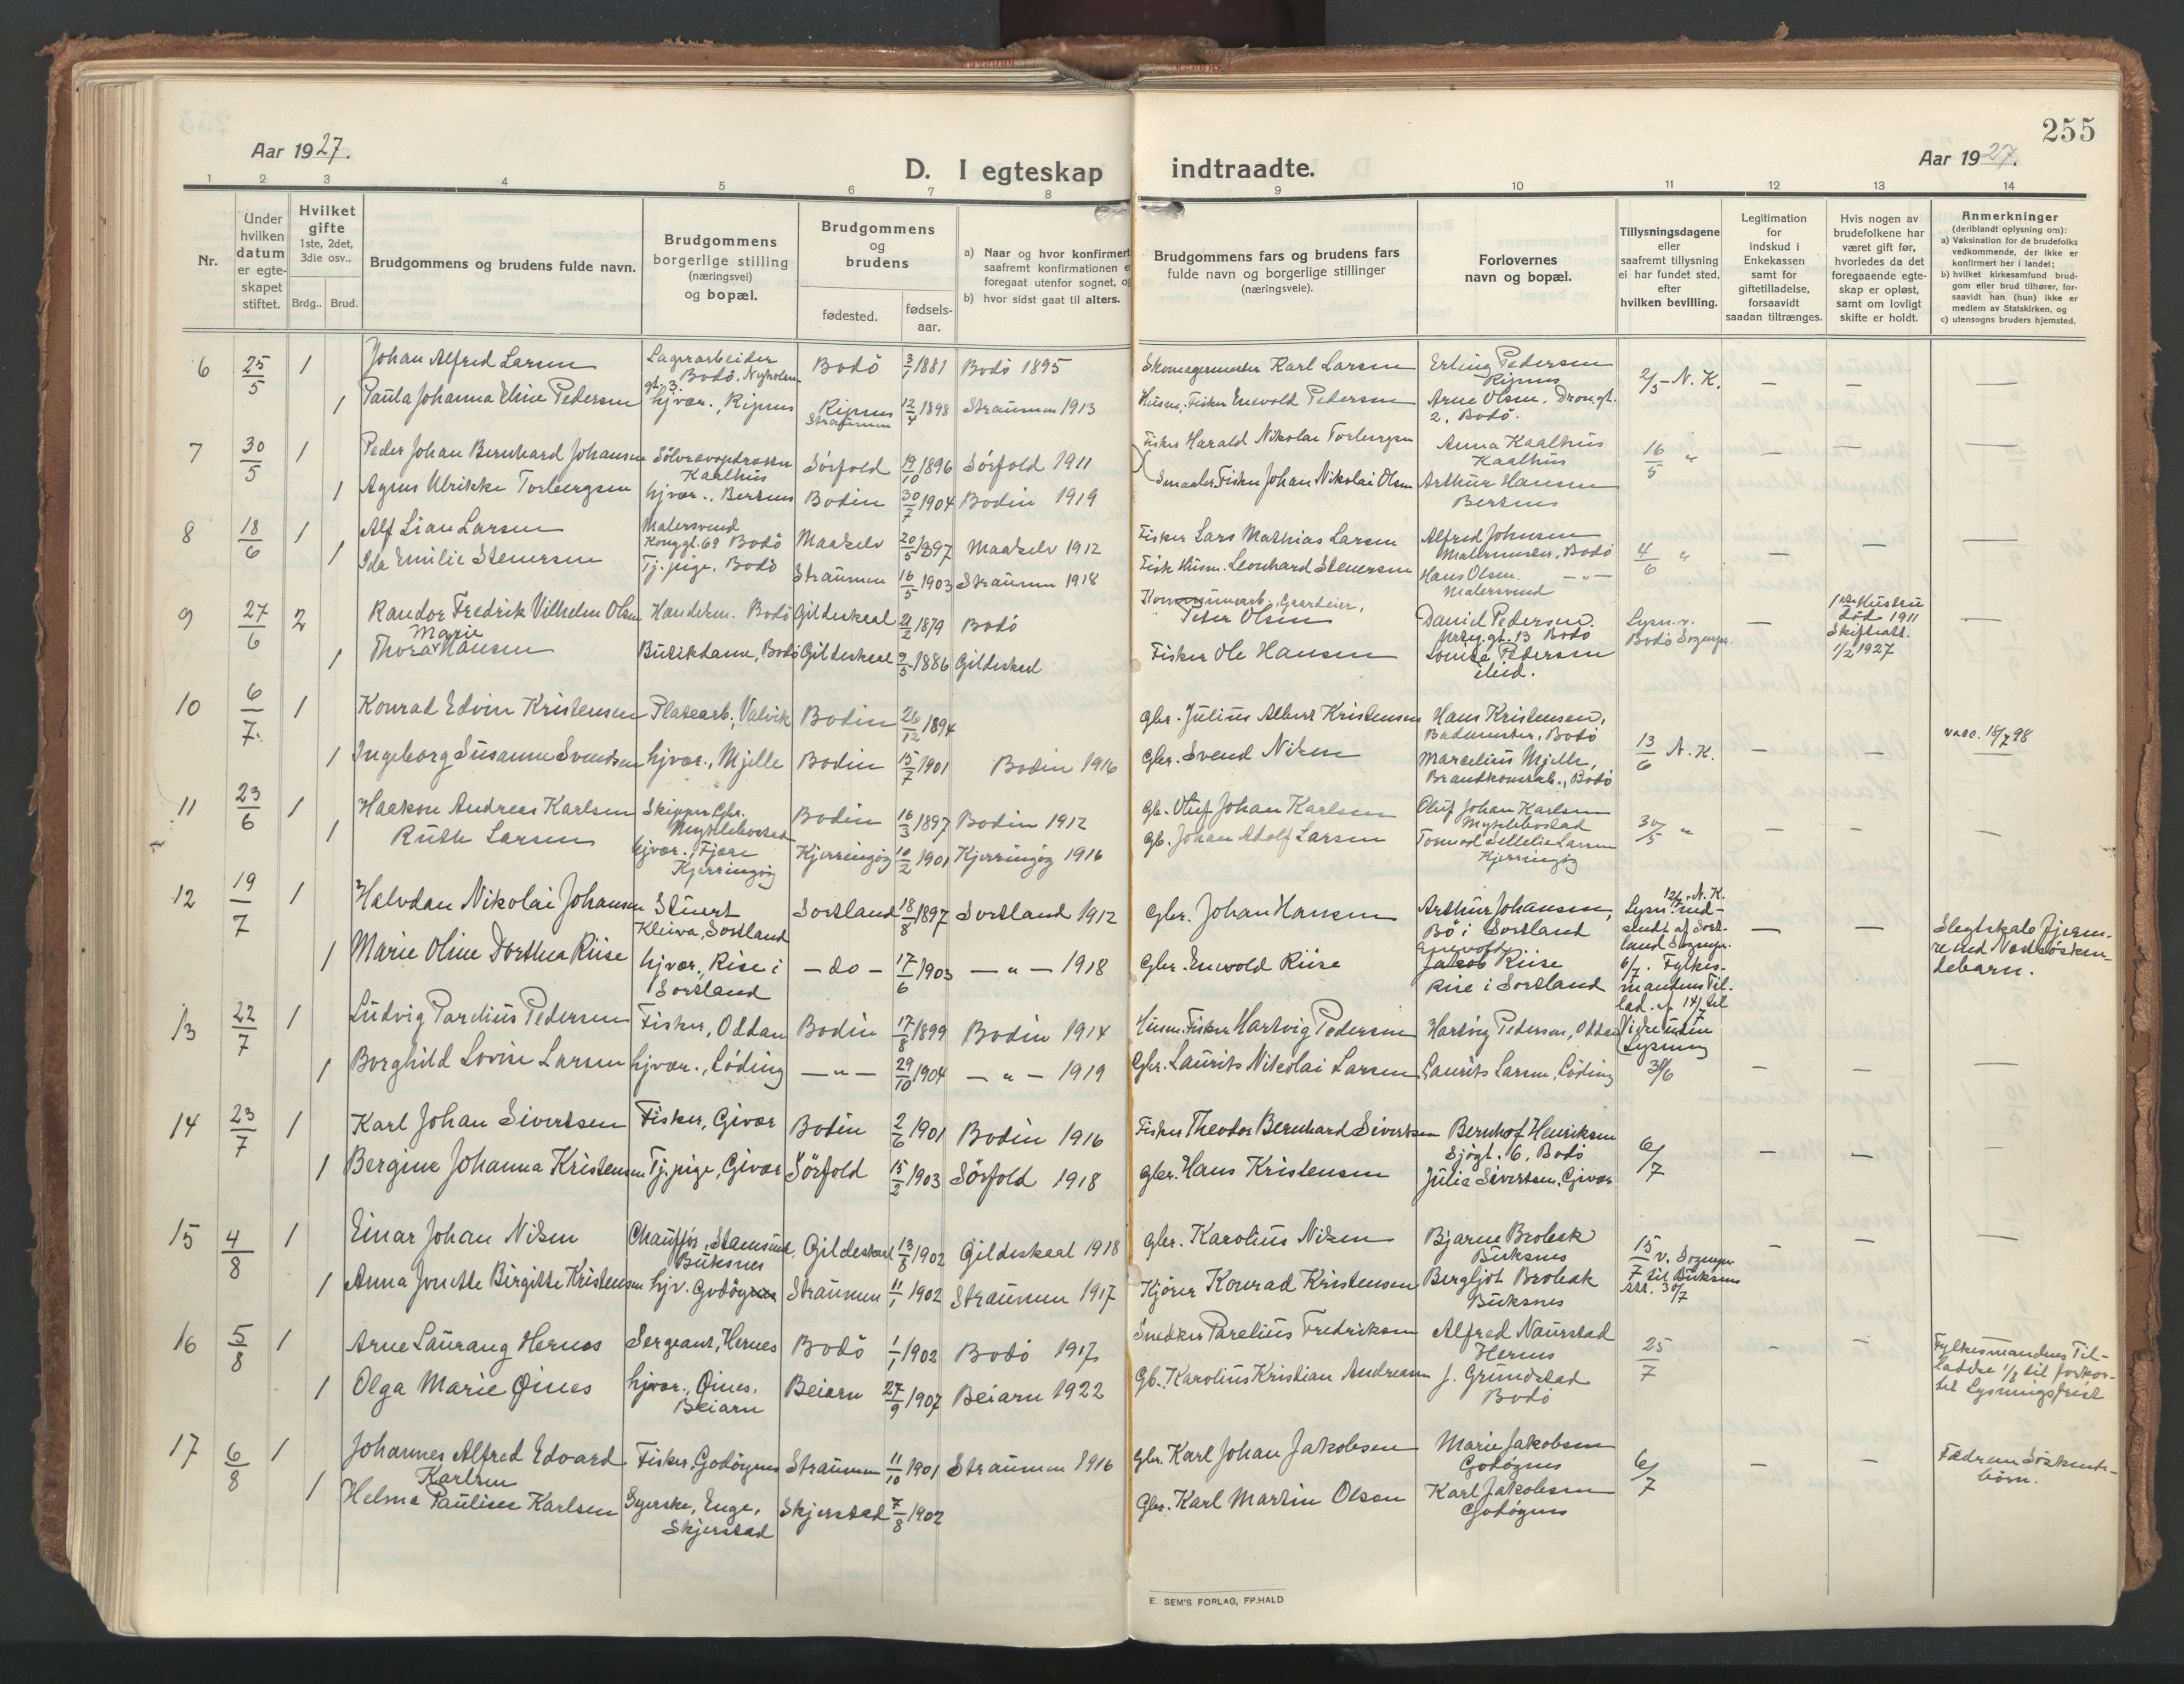 255
Aar 1927.
Aar 1927.
D. I egteskap indtraadte.
1 2 3 4 5 6 7 8 9 10 11 12 13 14
Nr.
Under hvilken datum er egte-skapet stiftet.
Hvilket gifte 1ste, 2det, 3die osv..
Brdg.. Brud.
Brudgommens og brudens fulde navn.
Brudgommens borgerlige stilling (næringsvei) og bopæl.
Brudgommens og brudens
fødested.
fødsels-aar.
a) Naar og hvor konfirmert
saafremt konfirmationen e
foregaat utenfor sognet, og
b) hvor sidst gaat til alters.
Brudgommens fars og brudens fars
fulde navn og borgerlige stillinger
(næringsveie).
Forlovernes
navn og bopæl.
Tillysningsdagene
eller
saafremt tillysning
ei har fundet sted,
efter
hvilken bevilling.
Legitimation
for
indskud i
Enkekassen
samt for
giftetilladelse,
forsaavidt
saadan tiltrænges.
Hvis nogen av
brudefolkene har
været gift før,
hvorledes da det
foregaaende egte-
skap er opløst,
samt om lovligt
skifte er holdt.
Anmerkninger
(deriblandt oplysning om):
a) Vaksination for de brudefolks
vedkommende, der ikke er
konfirmert her i landet;
b) hvilket kirkesamfund brud-
gom eller brud tilhører, for-
saavidt han (hun) ikke er
medlem av Statskirken, og
c) utensogns bruders hjemsted.
6 25/5 1 Johan Alfred Larsen Lagerarbeider gt. 3. Bodö, Nyholm- Bodö 3/1 1881 Bodö 1895 Skomagermester Karl Larsen Erling Pedersen Ripnes 2/5 - N. K. — — —
1 Paula Johanna Eline Pedersen hjvær., Ripnes Ripnes Straumen 12/4 1898 Straumen 1913 Husm., Fisker Enevold Pedersen Arne Olsen, Dron.gt. 2, Bodö.
7 30/5 1 Peder Johan Bernhard Johansen Kaalhus Sörfold 19/10 1896 Sörfold 1911 Fisker Harald Nikolai Torbergsen Anna Kaalhus Kaalhus 16/5 " — — —
1 Agnes Ulrikke Torbergsen hjvær., Bertnes Bodin 30/7 1904 Bodin 1919 Fisker Johan Nikolai Olsen Arthur Hansen Bertnes
8 18/6 1 Alf Lian Larsen Malersvend Konggt. 69 Bodö Maaselv 20/5 1897 Maaselv 1912 Fisker Lars Mathias Larsen Alfred Johnsen Malermester, Bodö 4/6 " — — —
1 Ida Emilie Stenersen Tj. pige, Bodö Straumen 16/5 1903 Straumen 1918 Fisk Husm. Leonhard Stenersen Hans Olsen. — " — Malersvend
9 27/6 2 Randor Fredrik Vilhelm Olsen Handelsm. Bodö Gildeskaal 21/2 1879 Bodö Gaardeier, Peter Olsen Daniel Pedersen. gt. 13 Bodö Lysn. v. Bodö Sognepr. — 1ste Hustru död 1911 Skifteatt. 1/2 1927 —
1 Thora Marie Hansen Butikdame, Bodö Gildeskaal 9/5 1886 Gildeskaal Fisker Ole Hansen Louise Pedersen ibid.
10 6/7 1 Konrad Edvin Kristensen Platearb., Valvik Bodin 26/12 1894 Gbr. Julius Albert Kristensen Hans Kristensen, Bademester, Bodö 13/6 N. K. — — vacc. 16/7 98
1 Ingeborg Susanne Svendsen hjvær., Mjelle Bodin 15/7 1901 Bodin 1916 Gbr. Svend Nilsen Marcelius Mjelle, Brandkonstab., Bodö
11 23/6 1 Haakon Andreas Karlsen Skipper Gbr. Myklebostad Bodin 16/3 1897 Bodin 1912 Gb. Oluf Johan Karlsen Oluf Johan Karlsen Myklebostad 30/5 " — — —
1 Ruth Larsen hjvær., Fjære Kjerringöy Kjerringöy 10/2 1901 Kjerringöy 1916 Gb. Johan Adolf Larsen Larsen Kjerringöy
12 19/7 1 Halvdan Nikolai Johansen Stuert Kleiva, Sortland Sortland 18/8 1897 Sortland 1912 Gbr. Johan Hansen Arthur Johansen, Bö i Sortland 12/6 - N. K. Lysn. ind-sendt af Sort-land Sognepr. 6/7. Fylkes-mandens Til-lad. af 14/7 til Vigsel uden Lysning — — Slegtskab fjern-re end Næstsösken-debarn.
1 Marie Oline Dorthea Riise hjvær., Rise i Sortland — do — 17/6 1903 — " — 1918 Gbr. Enevold Riise Enevold Jakob Riise Rise i Sortland
13 22/7 1 Ludvig Parelius Pedersen Fisker, Oddan Bodin 17/8 1899 Bodin 1914 Husm. Fisker Hartvig Pedersen Hartvig Pedersen, Oddan 30/6 — — —
1 Borghild Lovise Larsen hjvær., Löding — " — 29/10 1904 — " — 1919 Gbr. Laurits Nikolai Larsen Laurits Larsen, Löding
14 23/7 1 Karl Johan Sivertsen Fisker, Givær Bodin 2/6 1901 Bodin 1916 Fisker Theodor Bernhard Sivertsen Bernhof Henriksen Sjögt. 6, Bodö 6/7 — — —
1 Bergine Johanna Kristensen Tj. pige, Givær Sörfold 15/2 1903 Sörfold 1918 Gbr. Hans Kristensen Julie Sivertsen, Givær
15 4/8 1 Einar Johan Nilsen Chaufför, Stamsund, Buksnes Gildeskaal 13/8 1902 Gildeskaal 1918 Gbr. Karolius Nilsen Bjarne Brobak Buksnes 15/7 v. Sognepr til Buksnes att. 30/7 — — —
1 Anna Jonette Birgitte Kristensen hjv. Godöynes Straumen 11/1 1902 Straumen 1917 Kjörer Konrad Kristensen Bergljot Brobak Buksnes
16 5/8 1 Arne Laurang Hernes Sergeant, Hernes Bodö 1/1 1902 Bodö 1917 Snedker Parelius Fredriksen Alfred Naurstad Hernes 25/7 — — Fylkesmandens Til-ladelse 1/8 til forkor-tet Lysningsfrist
1 Olga Marie Øines hjvær., Øines, Beiarn Beiarn 27/9 1907 Beiarn 1922 Gb. Karolius Kristian Andreasen J. Grundstad Bodö
17 6/8 1 Johannes Alfred Edvard Karlsen Fisker, Godöynes Straumen 11/10 1901 Straumen 1916 Gbr. Karl Johan Jakobsen Marie Jakobsen Godöynes 6/7 — — Fedrene Söskende-börn.
1 Helma Pauline Karlsen Syerske, Enge, Skjerstad Skjerstad 7/8 1902 Gbr. Karl Martin Olsen Karl Jakobsen Godöynes
E. SEM'S FORLAG, FR.HALD